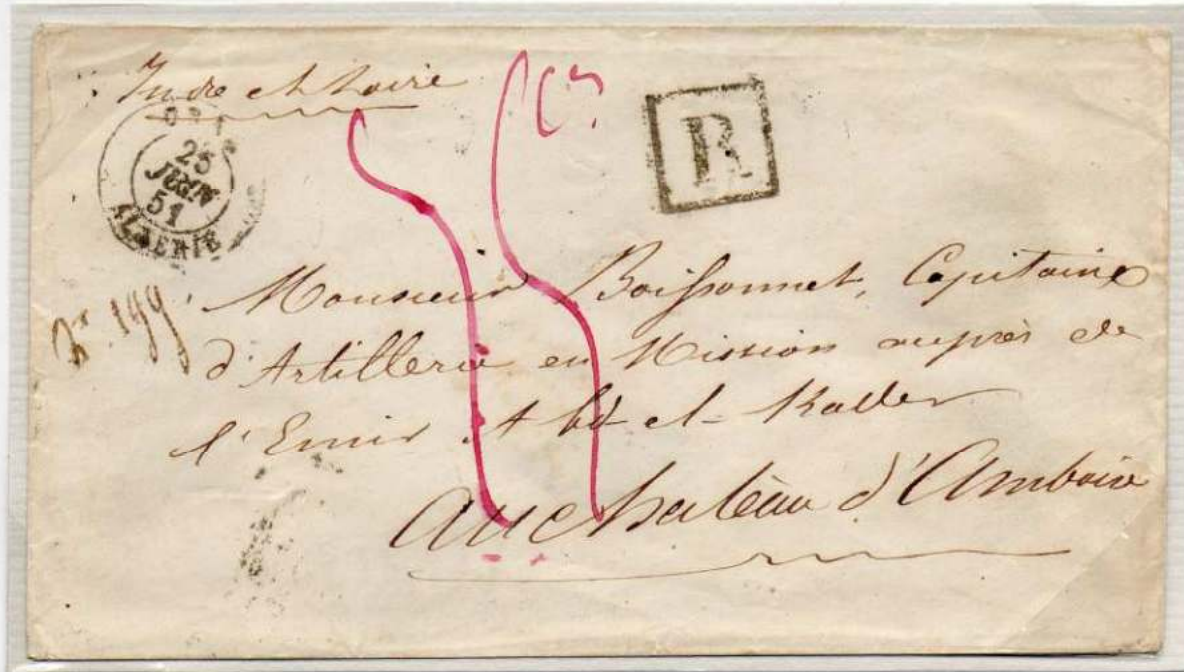 Indre et Loire
25
JUIN
51
ALGERIE
R
N° 199
Monsieur Boissonnet, Capitaine
d'Artillerie en Mission auprès de
l'Emir Abd-el-Kader
Au Chateau d'Amboise